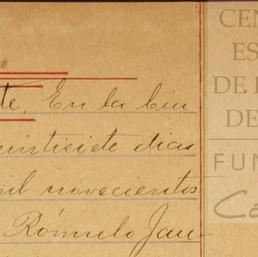 te. En la ciu-
eintisiete dias
mil novecientos
Rómulo Jau-
CEN
ES
DE
DE
FUN
Ca